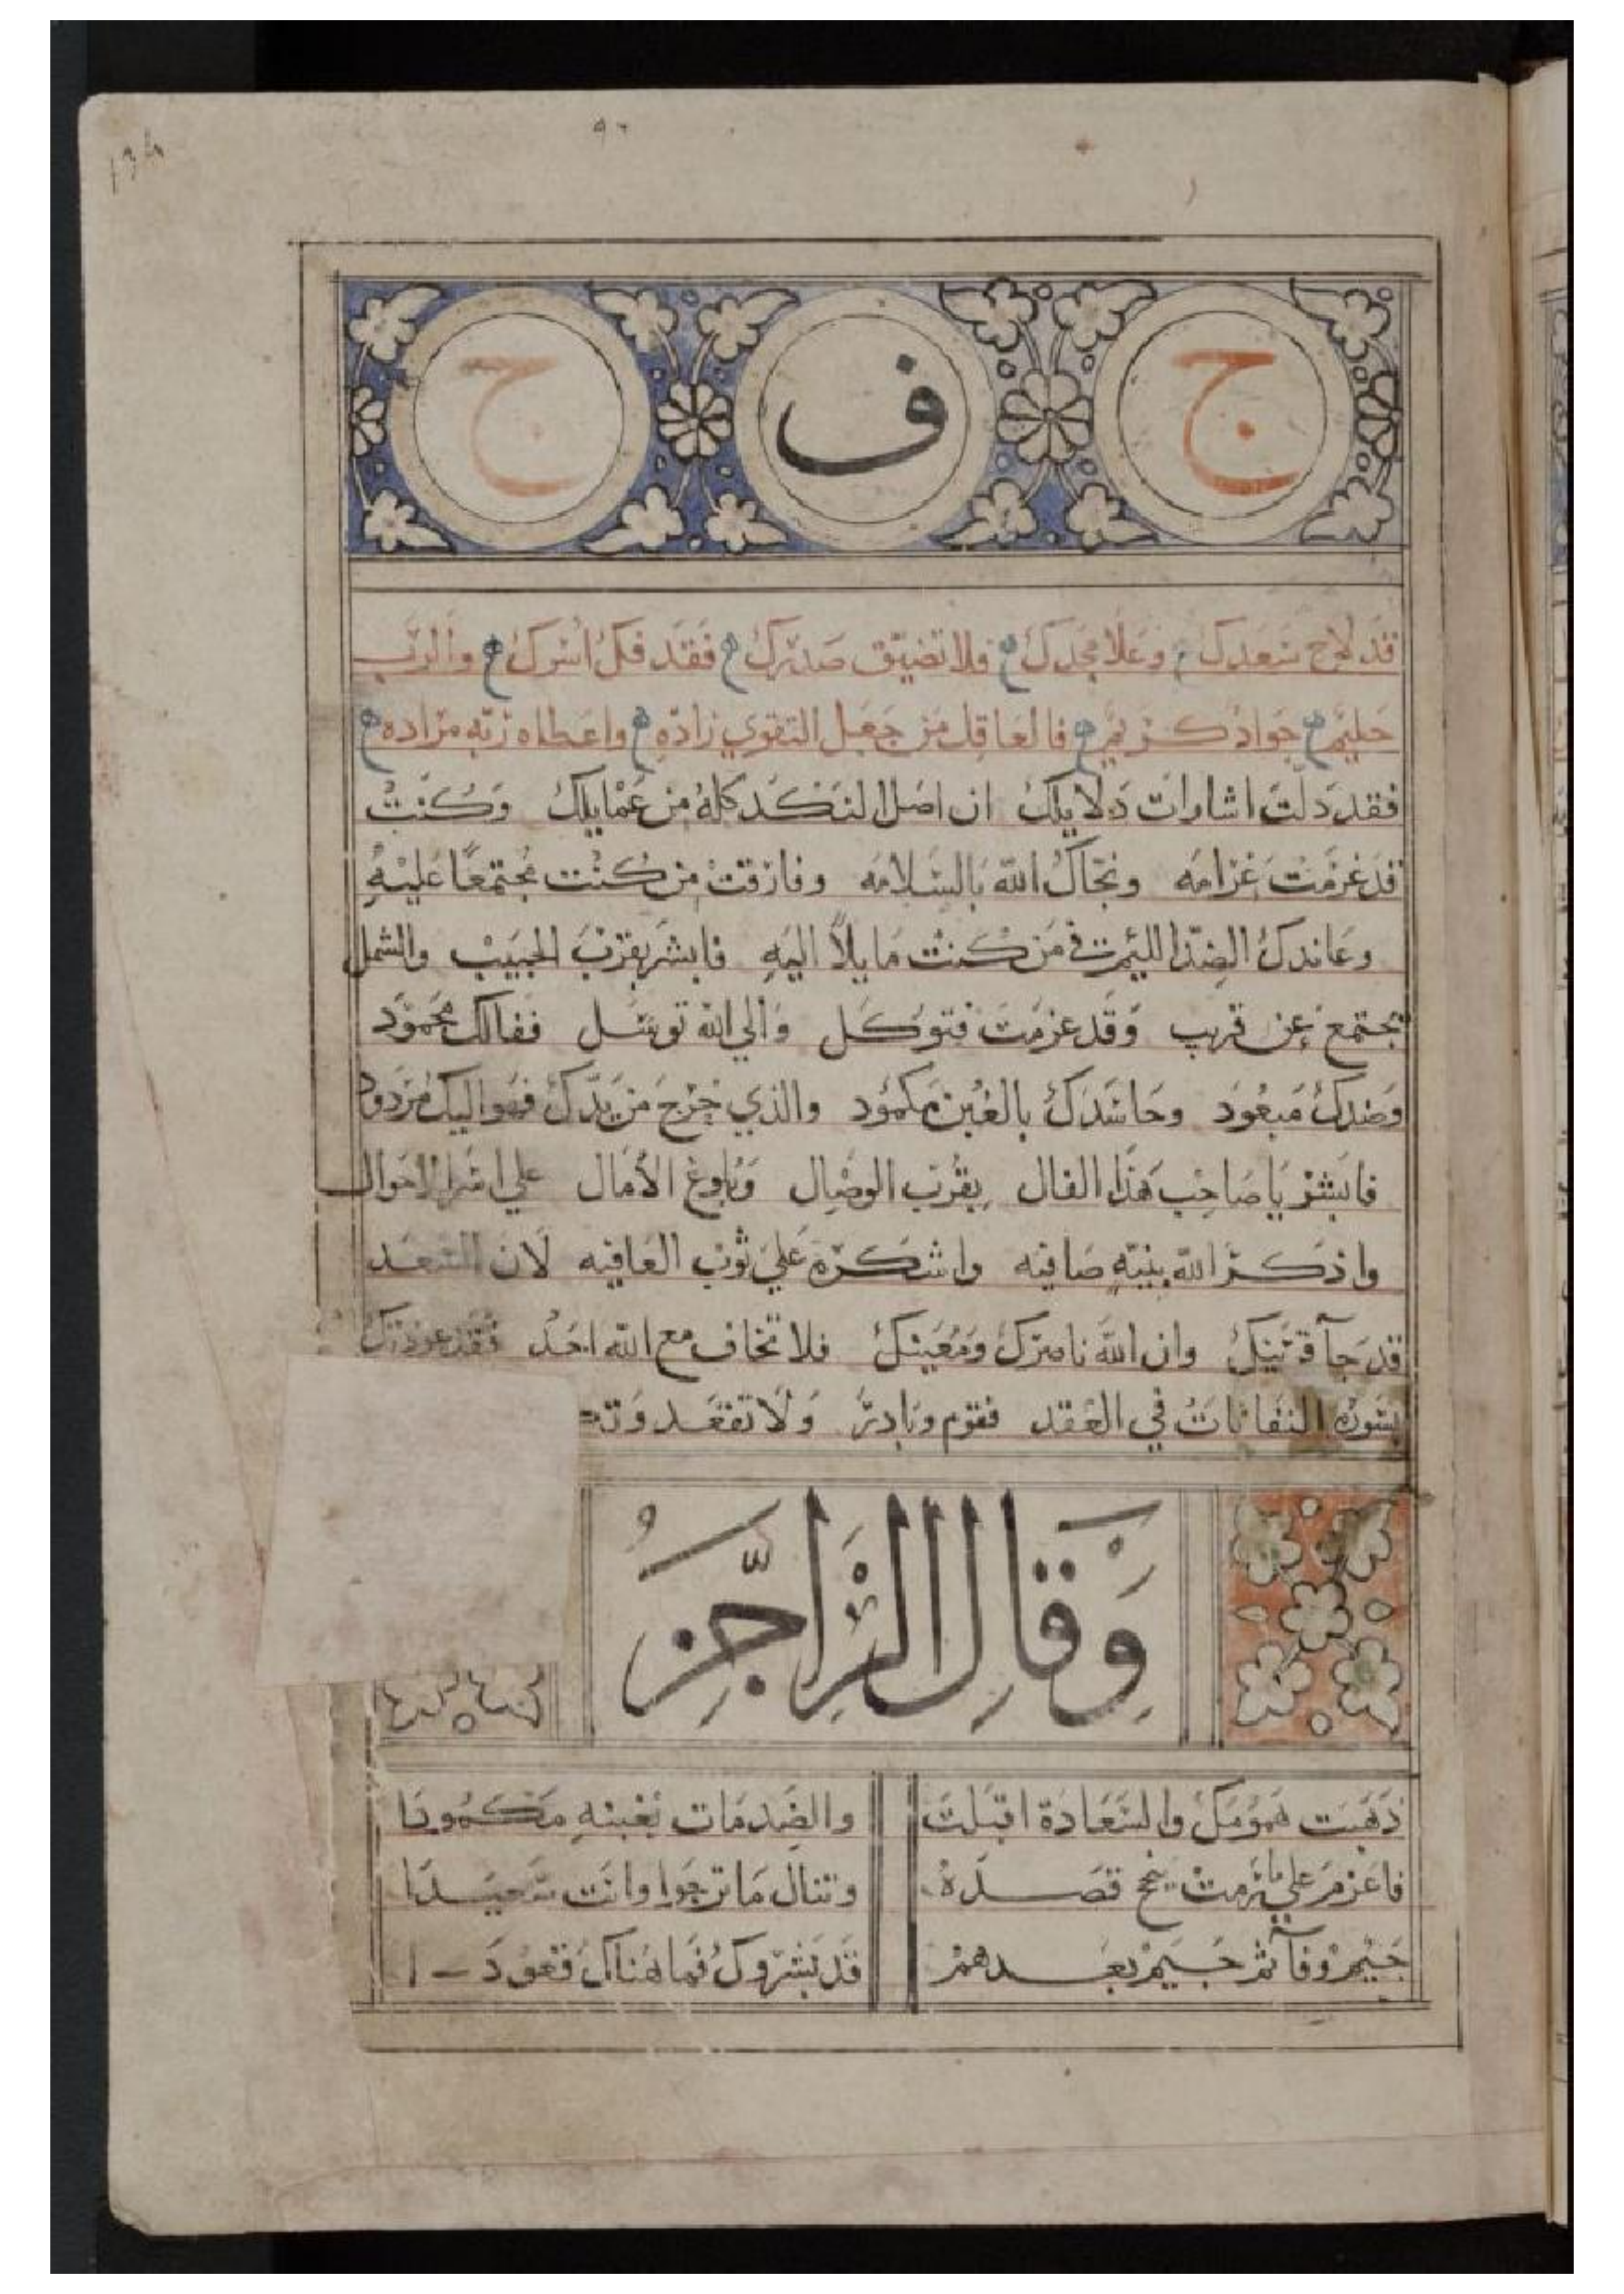 ج ف ج
قد لاح سعدك وعلا مجدك فلا تضيق صدرك فقد فك اسرك والرب
حليم جواد كريم فالعاقل من جعل التقوي زاده واعطاه ربه مراده
فقد دلت اشارات دلايلك ان اصل النكد كله من عمايلك وكنت
قد غرمت غرامه ونجاك الله بالسلامه وفارقت من كنت مجتمعا عليه
وعاندك الضد اللئيم في من كنت مايلا اليه فابشر بقرب الحبيب والشمل
يجتمع عن قريب وقد عزمت فتوكل والي الله توسل ففالك محمود
وضدك مبعود وحاسدك بالغبن مكمود والذي خرج من يدك فهو اليك مردود
فابشر يا صاحب هذا الفال بقرب الوصال وبلوغ الامال علي اسر الاحوال
واذكر الله بنية صافيه واشكره علي ثوب العافيه لان السعد
قد جآ قرينك وان الله ناصرك ومعينك فلا تخاف مع الله احد فقد عوذتك
بسورة النفاثات في العقد فقوم وبادر ولا تقعد
وقال الراجز
ذهبت همومك والسعادة اقبلت والضد مات بغبنه مكمودا
فاعزم علي ما رمت ينجح قصده وتنال ما ترجوا وانت سعيدا
جيم وفآ ثم جيم بعدهم قد بشروك فما هناك قعودا